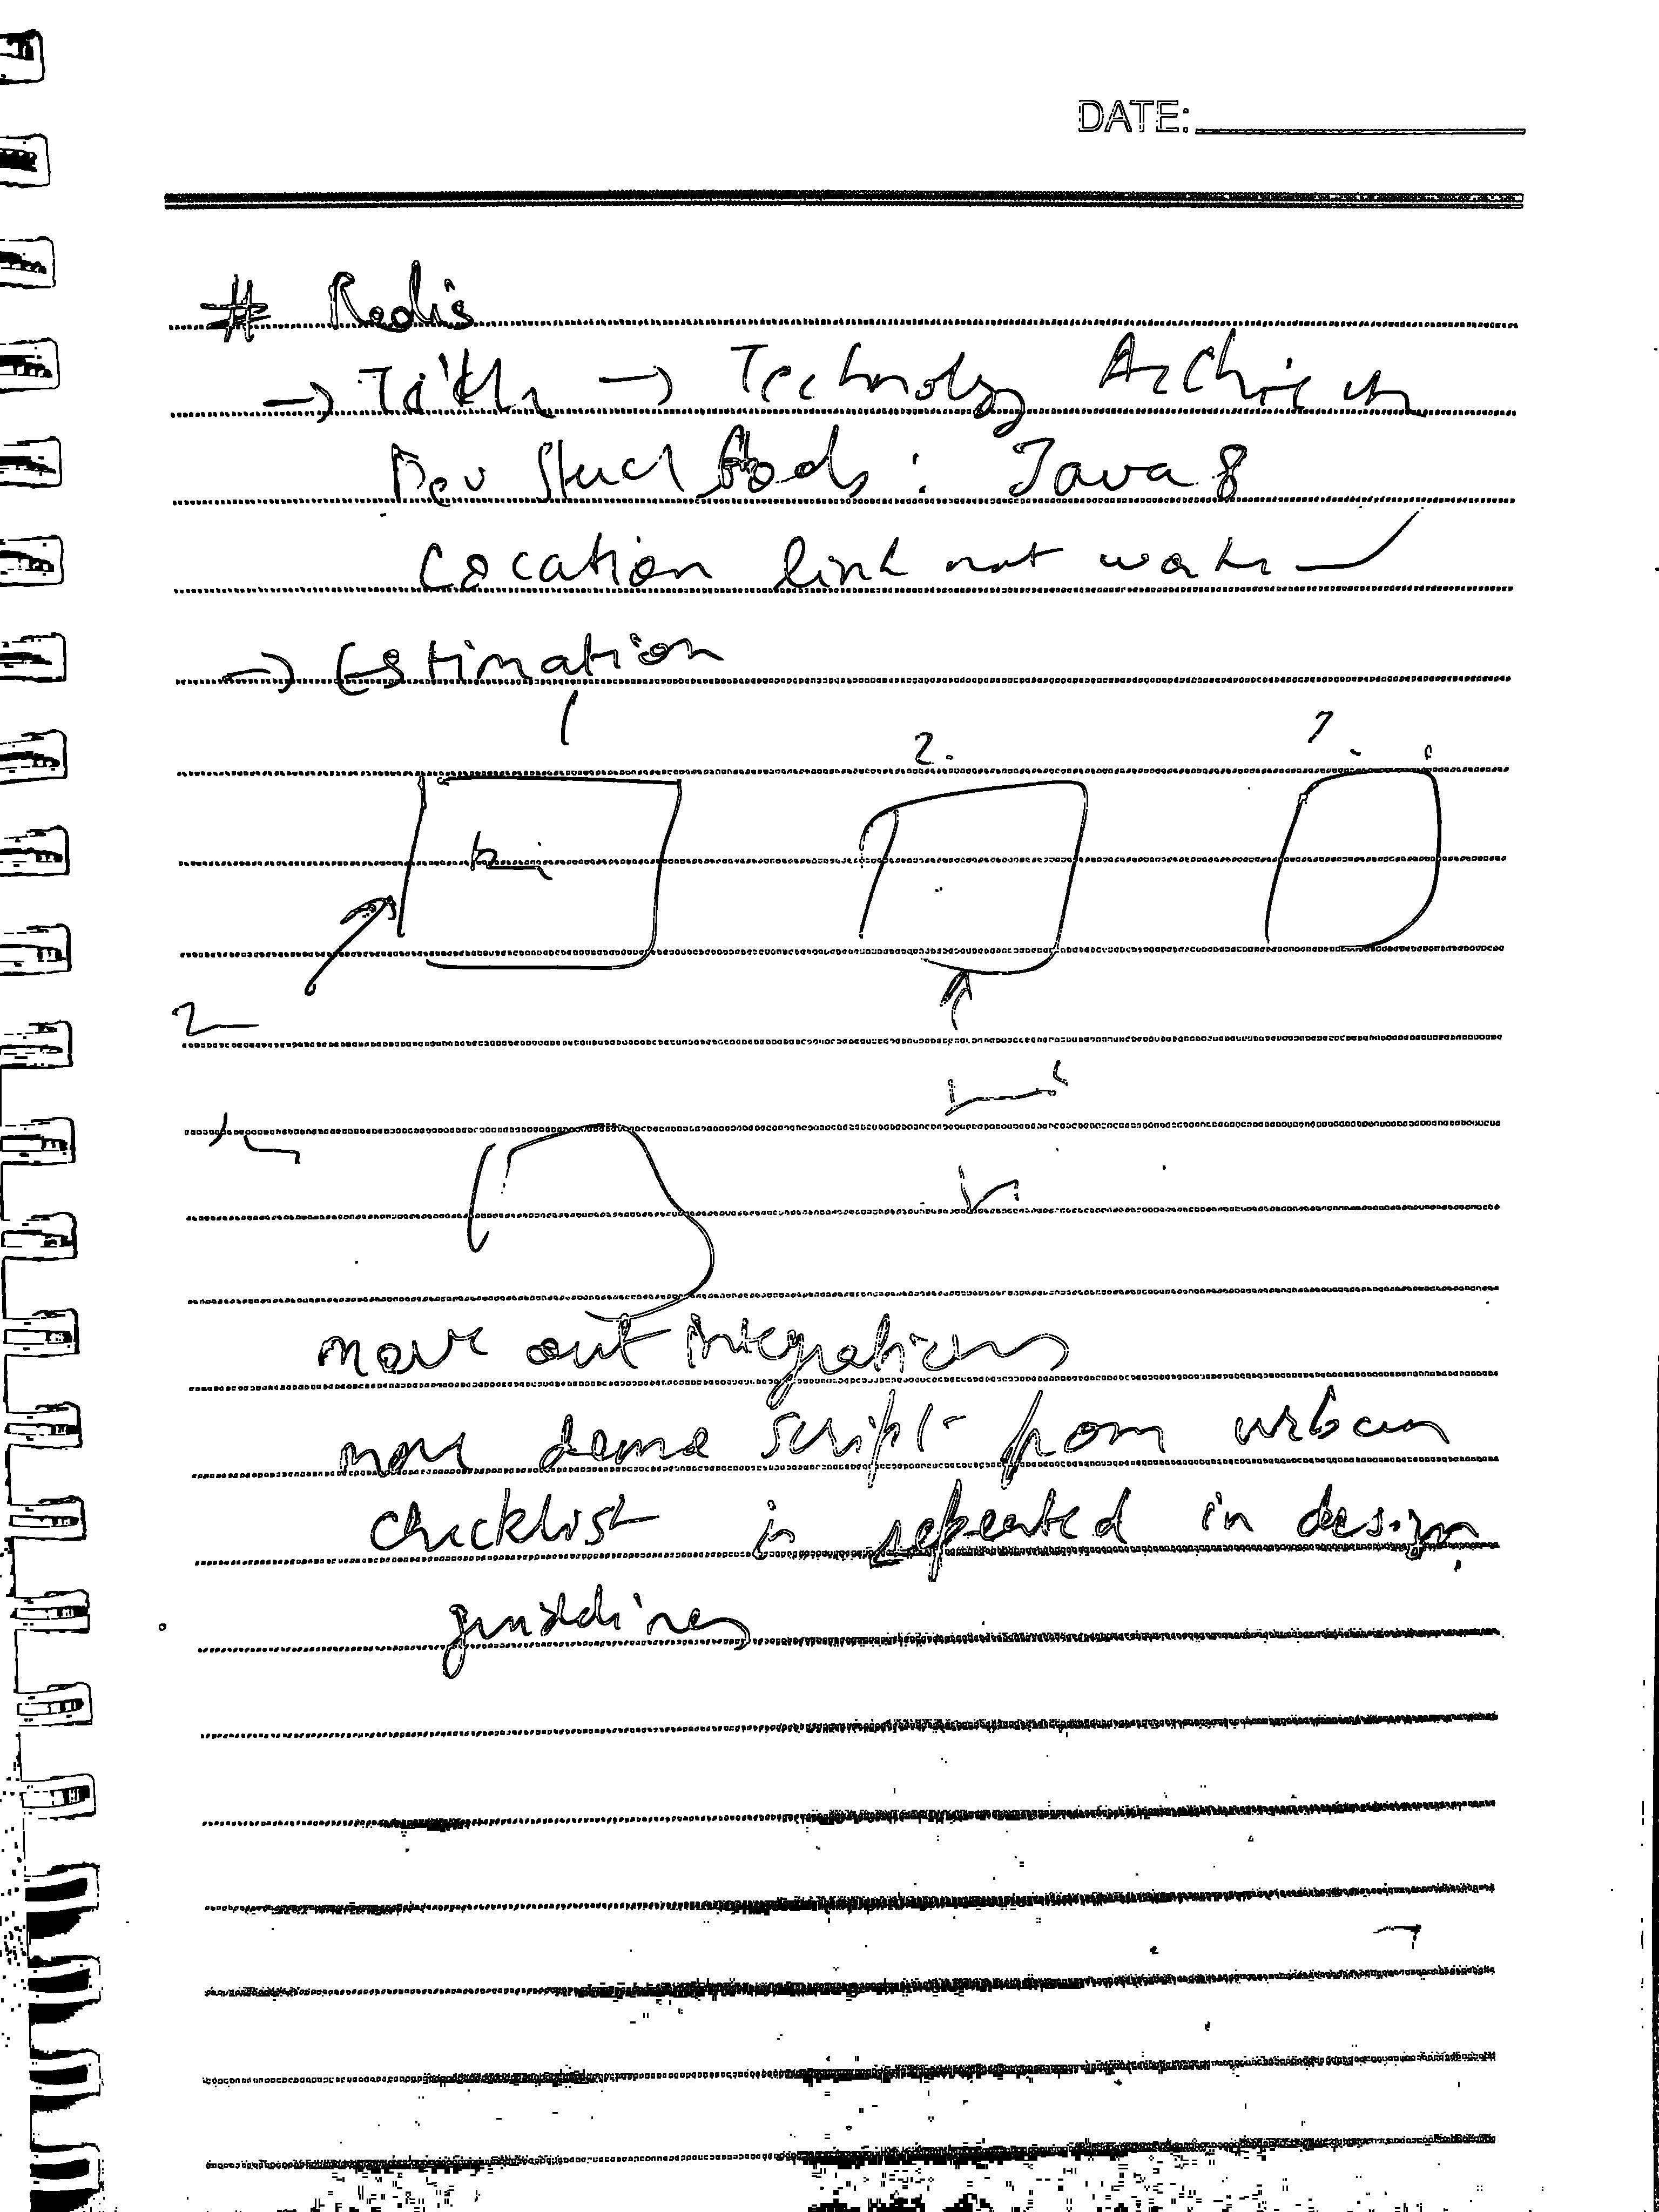 DATE:
# Redis
→ Title → Technology Architect
Dev Stack : Java 8
Location link not work
→ Estimation
1
2.
2
move out integrations
more demo script from urban
checklist is repeated in design
guidelines